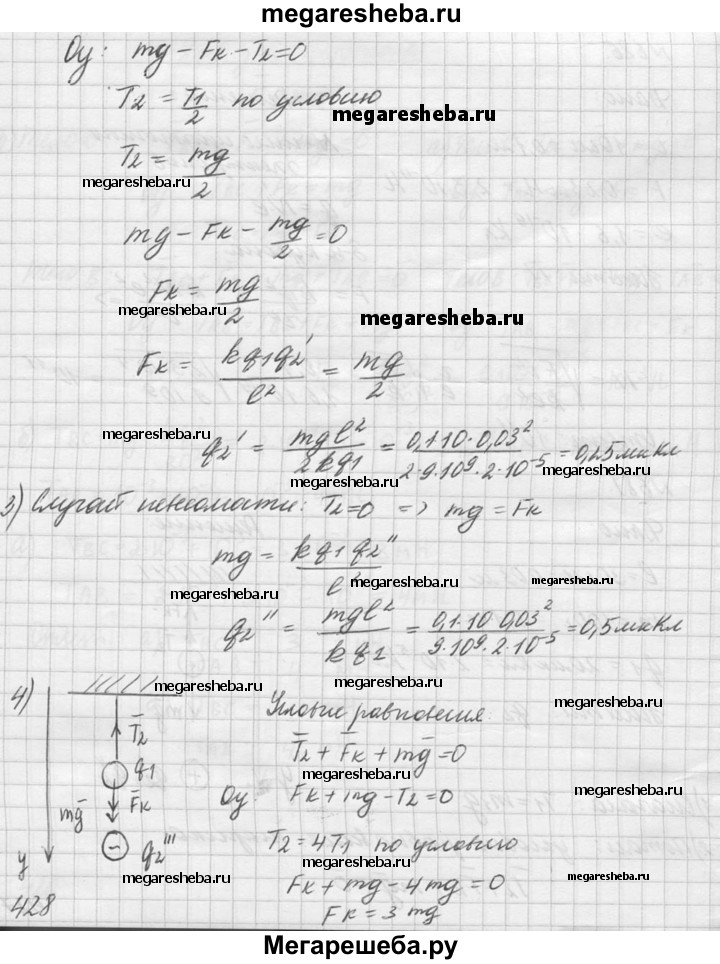 megaresheba.ru
Oy: mg - Fк - T₂ = 0
T₂ = T₁/2 по условию
megaresheba.ru
T₂ = mg/2
megaresheba.ru
mg - Fк - mg/2 = 0
Fк = mg/2
megaresheba.ru
megaresheba.ru
Fк = kq₁q₂'/l² = mg/2
megaresheba.ru
q₂' = mgl²/2kq₁ = 0,1·10·0,03²/2·9·10⁹·2·10⁻⁵ = 0,25 мкКл
megaresheba.ru
megaresheba.ru
3) Случай невесомости: T₂ = 0 => mg = Fк
mg = kq₁q₂''/l²
megaresheba.ru
megaresheba.ru
q₂'' = mgl²/kq₁ = 0,1·10·0,03²/9·10⁹·2·10⁻⁵ = 0,5 мкКл
megaresheba.ru
megaresheba.ru
4)
megaresheba.ru
megaresheba.ru
T̄₂
q₁
F̄к
mḡ
q₂'''
y
Условие равновесия:
T̄₂ + F̄к + mḡ = 0
megaresheba.ru
megaresheba.ru
Oy: Fк + mg - T₂ = 0
T₂ = 4T₁ по условию
megaresheba.ru
megaresheba.ru
Fк + mg - 4mg = 0
Fк = 3mg
428
Мегарешеба.ру